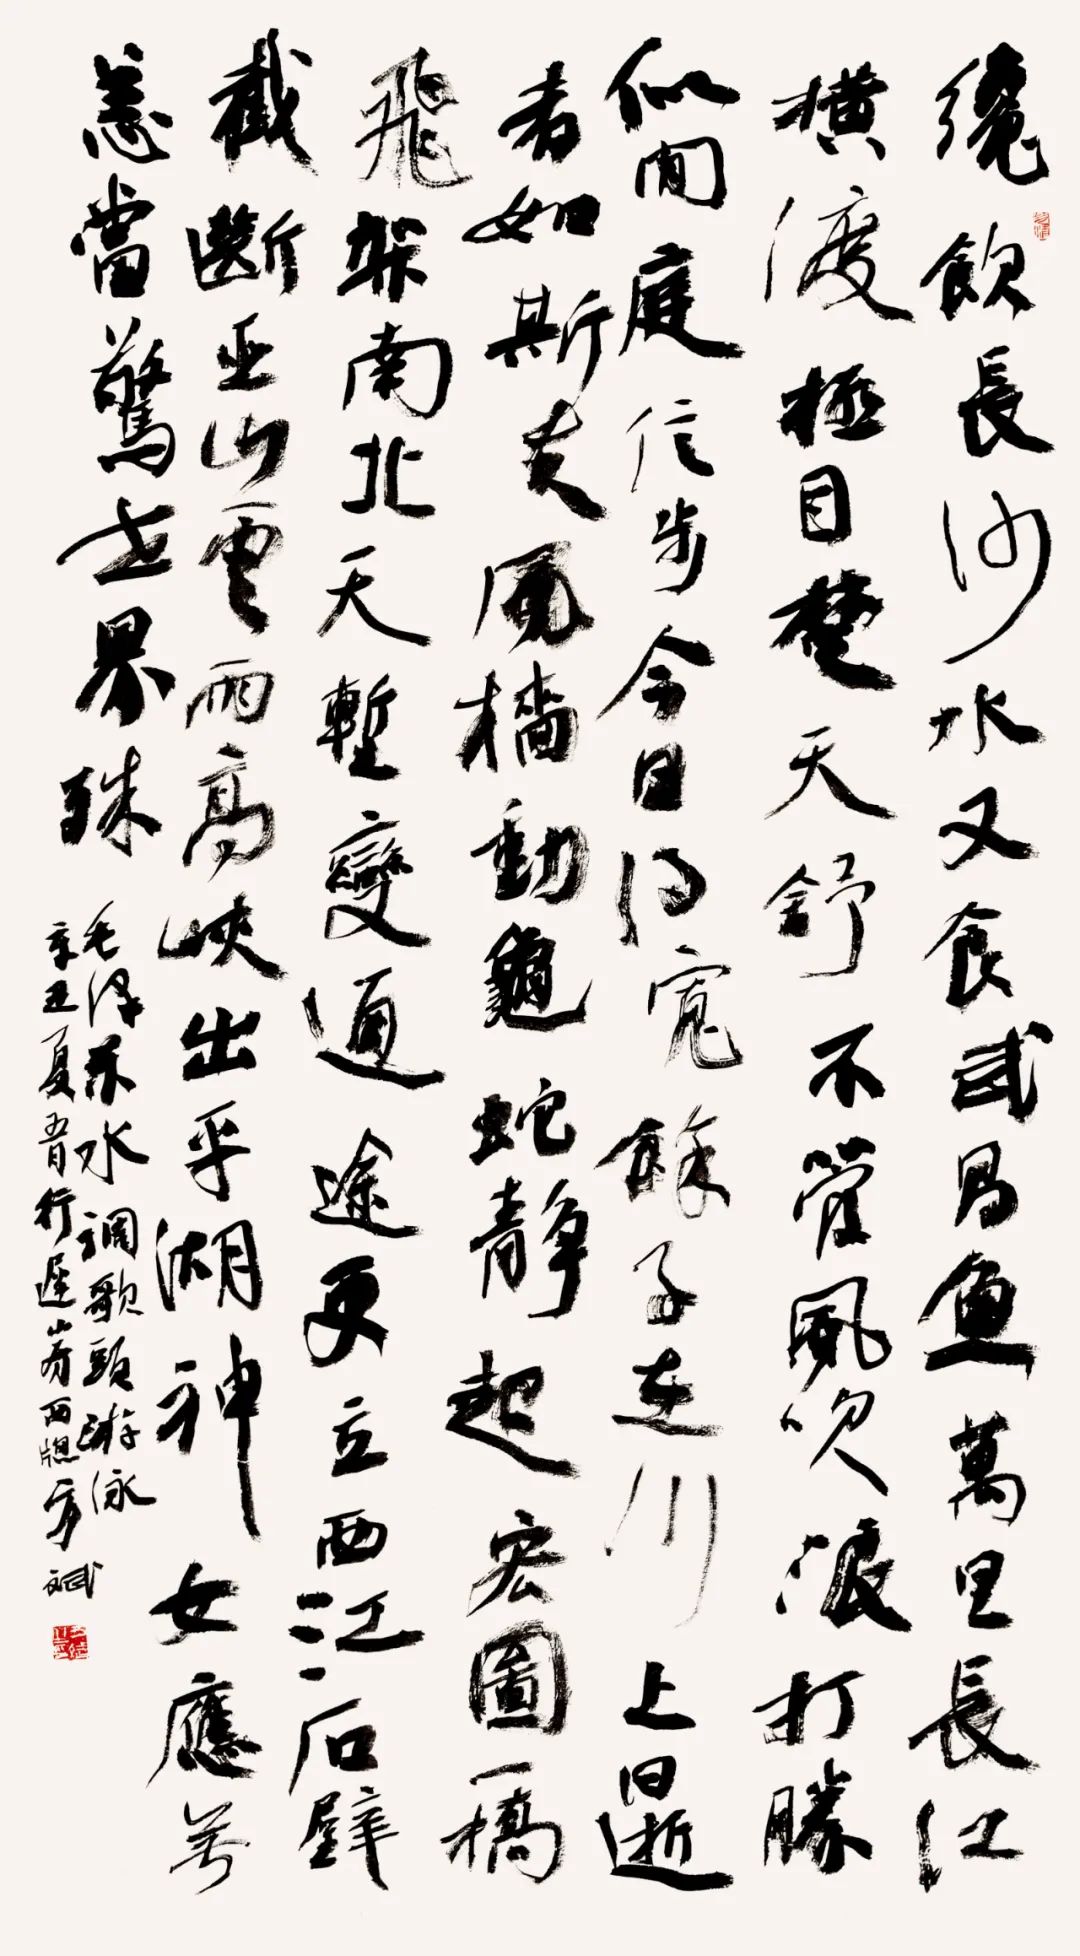 纔飲長沙水又食武昌魚萬里長江
橫渡極目楚天舒不管風吹浪打勝
似閒庭信步今日得寬餘子在川上曰逝
者如斯夫風檣動龜蛇靜起宏圖一橋
飛架南北天塹變通途更立西江石壁
截斷巫山雲雨高峽出平湖神女應無
恙當驚世界殊
毛澤東水調歌頭游泳
辛丑夏五月行遲牕斌